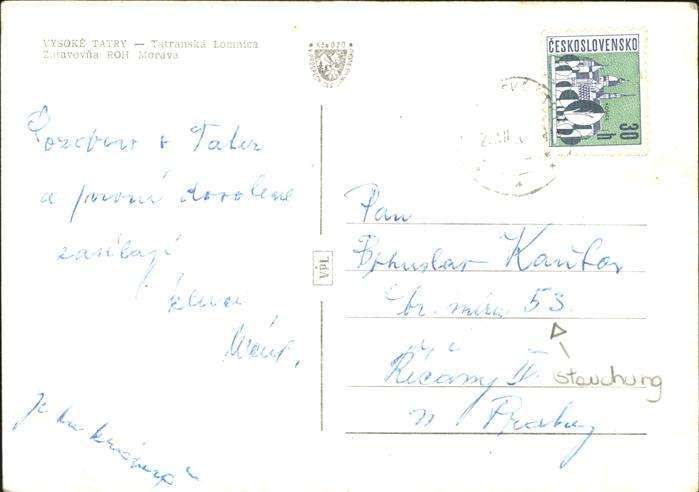 VYSOKÉ TATRY — Tatranská Lomnica
Zotavovňa ROH Morava
ČESKOSLOVENSKO
30 h
Pozdrav z Tater
a první dovolené
zasílají
VPL
Pan
Bohuslav Kantor
br. míru 53
Říčany II
u Prahy
stauchung